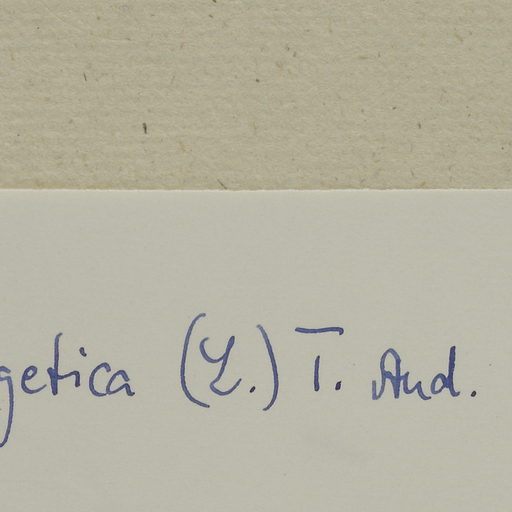 getica (L.) T. And.